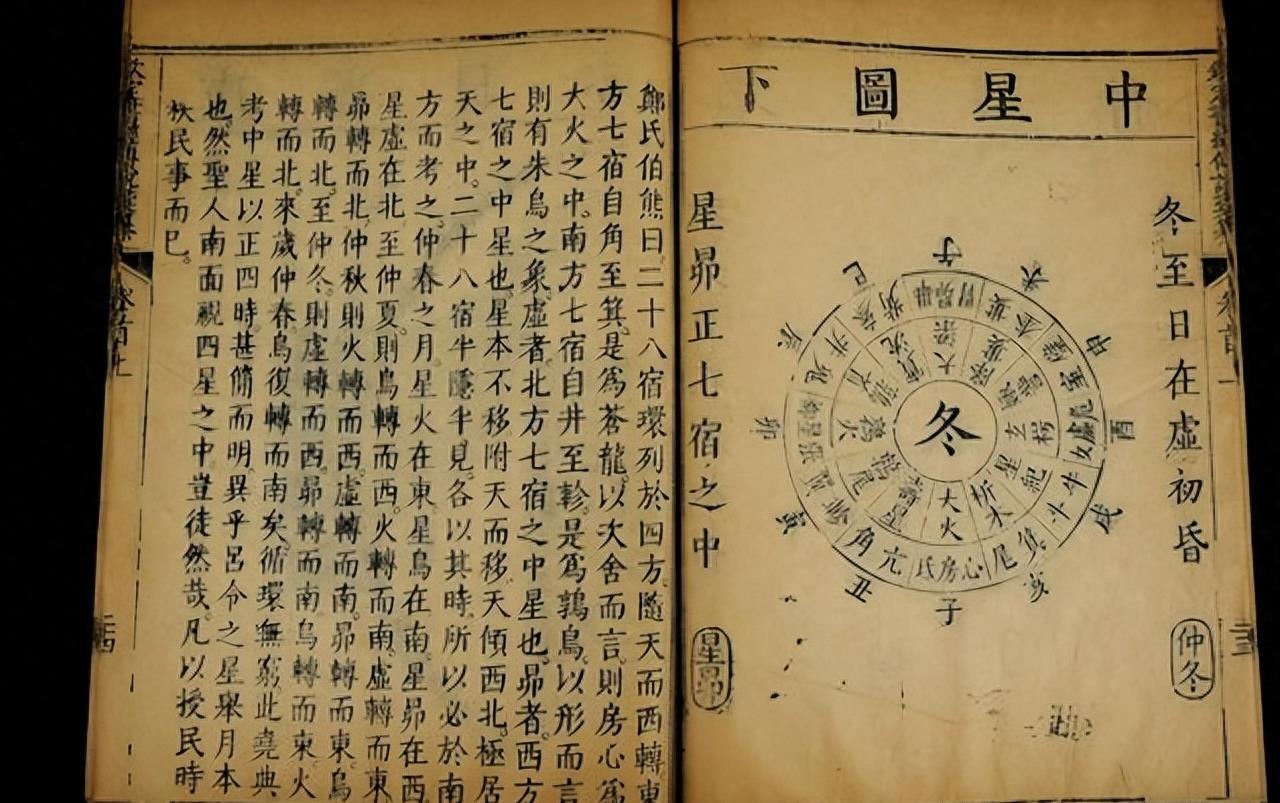 中星圖下
冬至日在虛初昏
仲冬
冬
大火
析木
星紀
玄枵
壽星
鶉尾
鶉火
氐房心
尾箕
斗牛
女虛危
角亢
子
亥
戌
酉
丑
寅
卯
辰
巳
星昴正七宿之中
星昴
鄭氏伯熊曰。二十八宿環列於四方。隨天而西轉東
方七宿自角至箕。是爲蒼龍。以次舍而言。則房心爲
大火之中。南方七宿自井至軫。是爲鶉鳥。以形而言
則有朱鳥之象。虛者。北方七宿之中星也。昴者。西方
七宿之中星也。星本不移。附天而移。天傾西北。極居
天之中。二十八宿半隱半見。各以其時。所以必於南
方而考之。仲春之月。星火在東。星鳥在南。星昴在西
星虛在北。至仲夏。則鳥轉而西。火轉而南。虛轉而東
昴轉而北。仲秋則火轉而西。虛轉而南。昴轉而東。鳥
轉而北。至仲冬。則虛轉而西。昴轉而南。鳥轉而東。火
轉而北。來歲仲春。鳥復轉而南矣。循環無窮。此堯典
考中星以正四時。甚簡而明。異乎呂令之星舉月本
也。然聖人南面視四星之中。豈徒然哉。凡以授民時
秩民事而已。